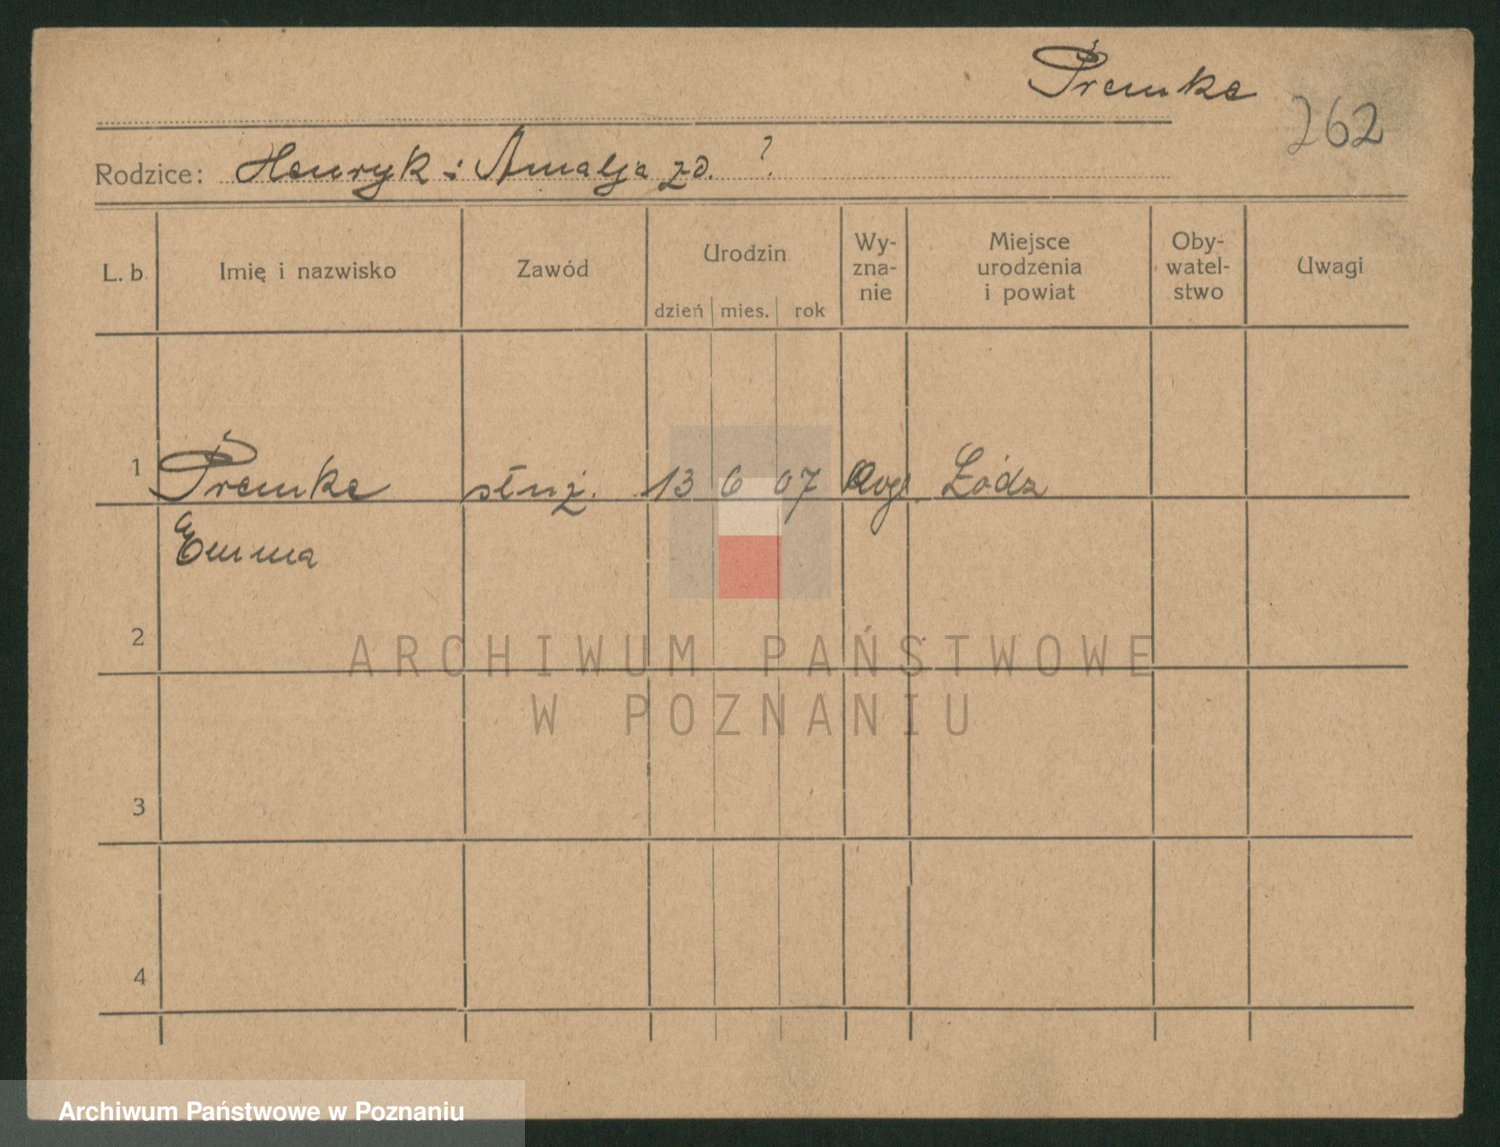 Premke
262
Rodzice: Henryk i Amalja zd. ?
L. b. Imię i nazwisko Zawód Urodzin dzień mies. rok Wyznanie Miejsce urodzenia i powiat Obywatelstwo Uwagi
1 Premke służ. 13 6 07 Łódz
Emma
2
3
4
ARCHIWUM PAŃSTWOWE
W POZNANIU
Archiwum Państwowe w Poznaniu